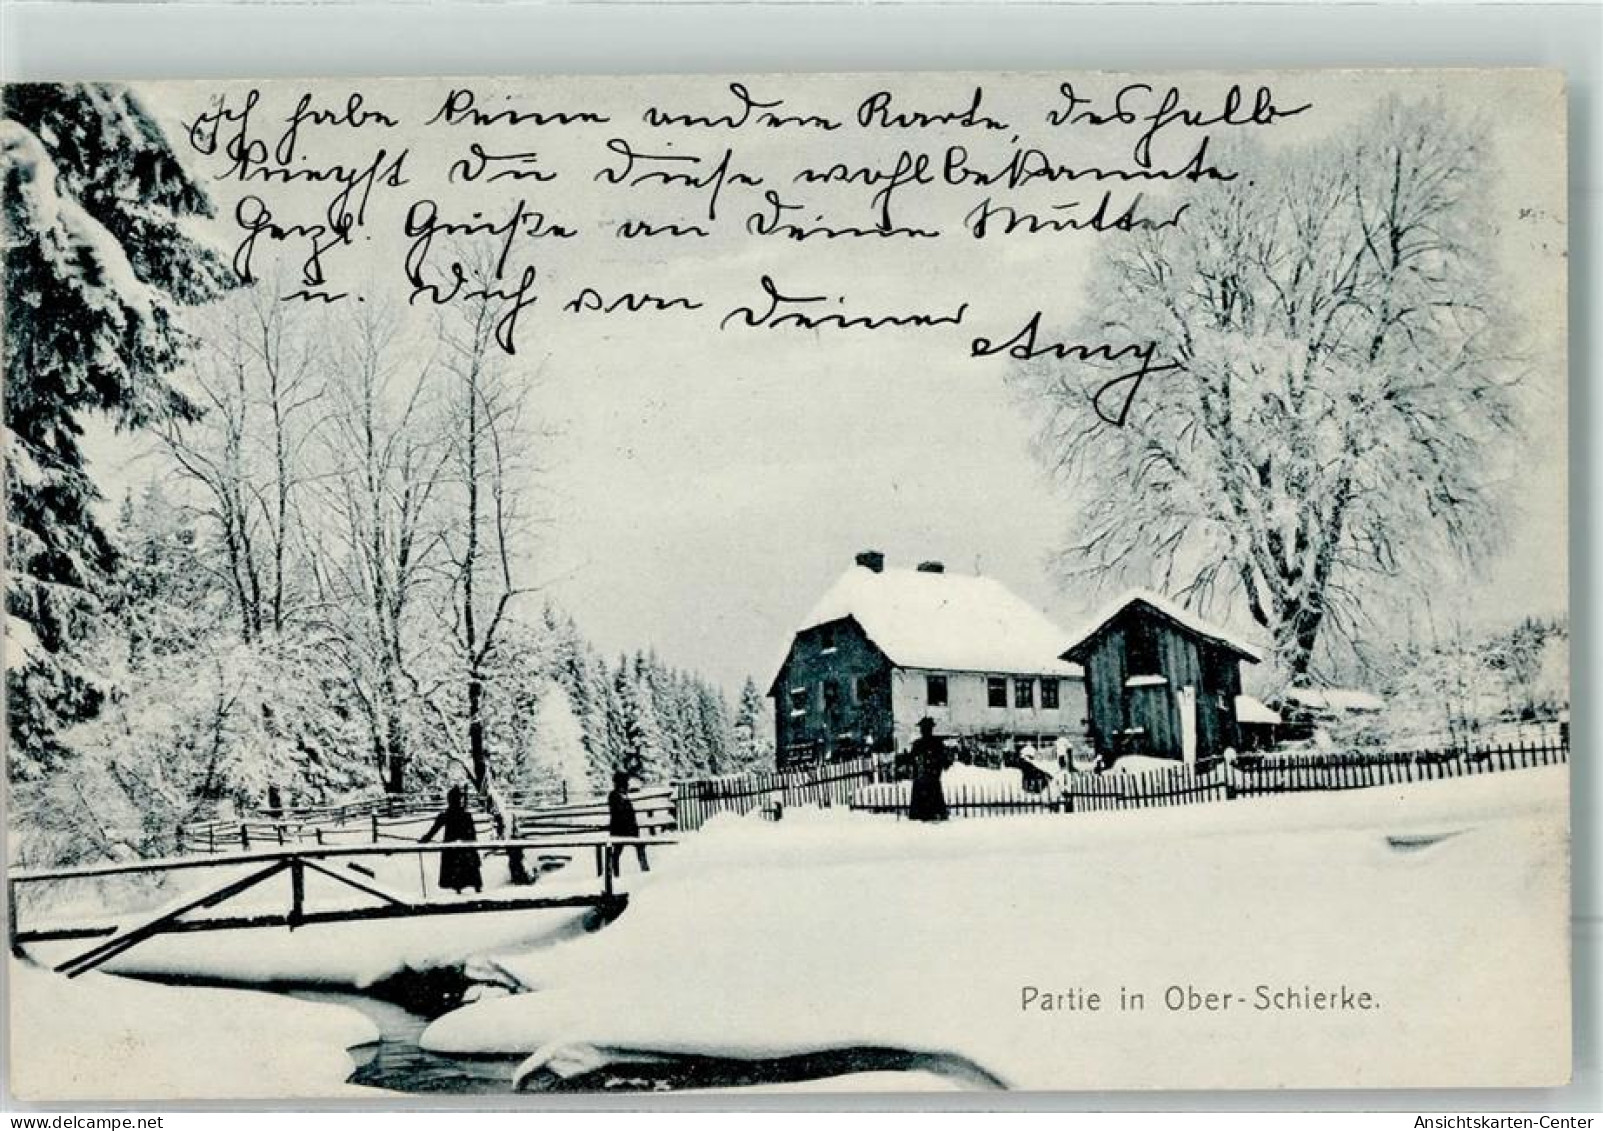 Ich habe keine andere Karte, deshalb
kriegst Du diese wohlbekannte.
Herzl. Grüße an Deine Mutter
u. Dich von Deiner
Amy
Partie in Ober-Schierke.
Ansichtskarten-Center